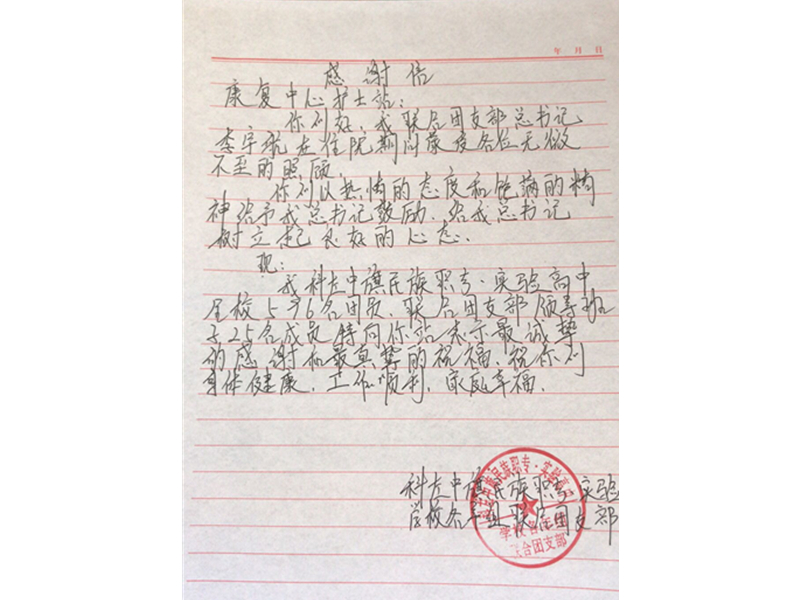 年 月 日
感谢信
康复中心护士站：
你们好，我联合团支部总书记
李宇航在住院期间蒙受各位无微
不至的照顾，
你们以热情的态度和饱满的精
神给予我总书记鼓励，给我总书记
树立起良好的心态。
现：
我科左中旗民族职专·实验高中
全校576名团员，联合团支部领导班
子25名成员特向你站表示最诚挚
的感谢和最真挚的祝福，祝你们
身体健康，工作顺利，家庭幸福。
科左中旗民族职专·实验
学校各年级联合团支部
科左中旗民族职专·实验高中
学校各年级
联合团支部